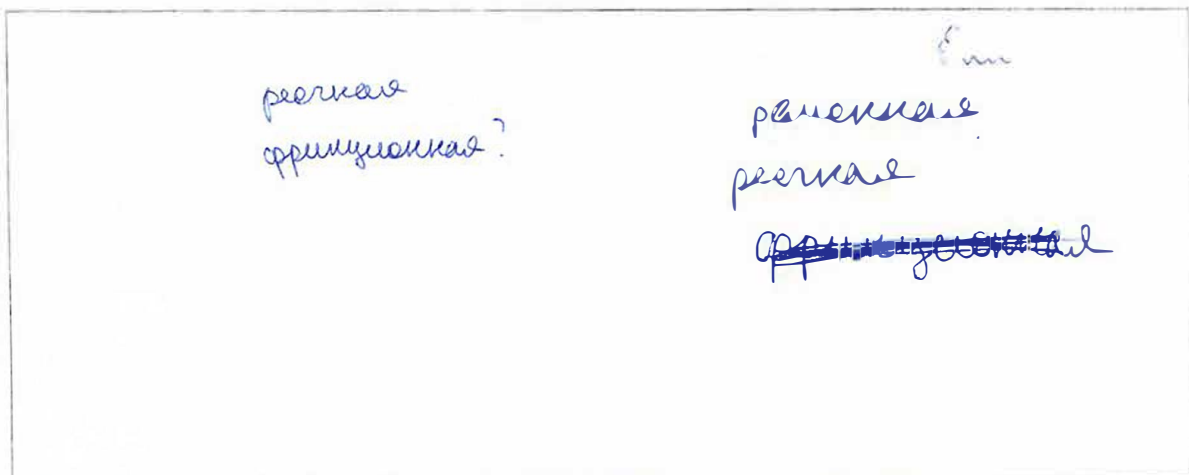 реечная
фрикционная?
реечная
фрикционная